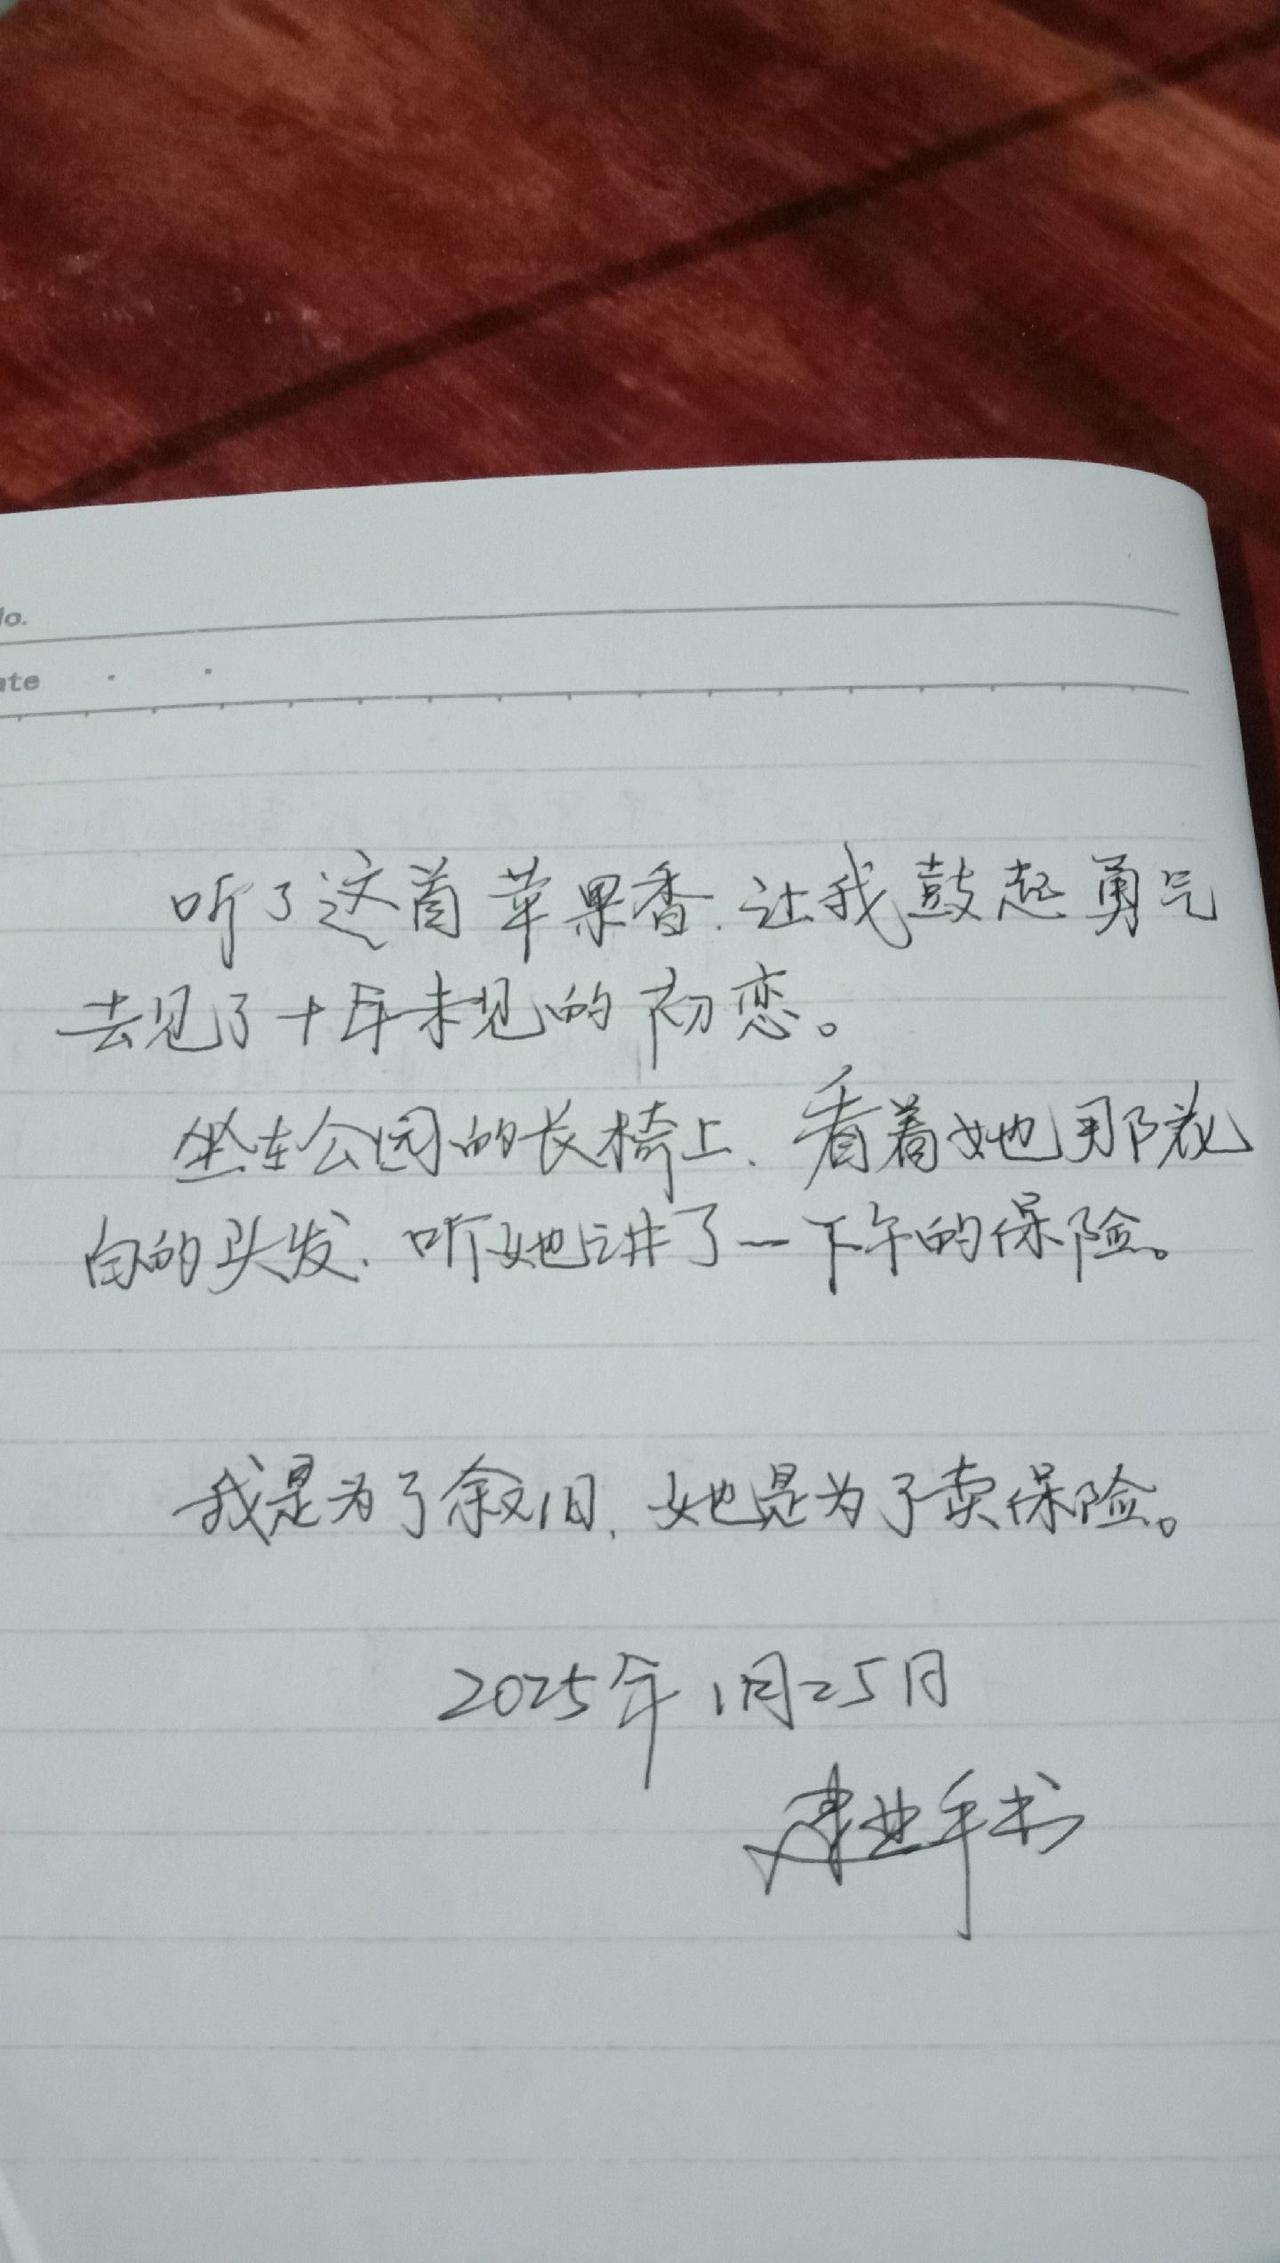 No.
ate
听了这首苹果香,让我鼓起勇气
去见了十年未见的初恋。
坐在公园的长椅上,看着她那花
白的头发,听她讲了一下午的保险。
我是为了叙旧,她是为了卖保险。
2025年1月25日
建业手书